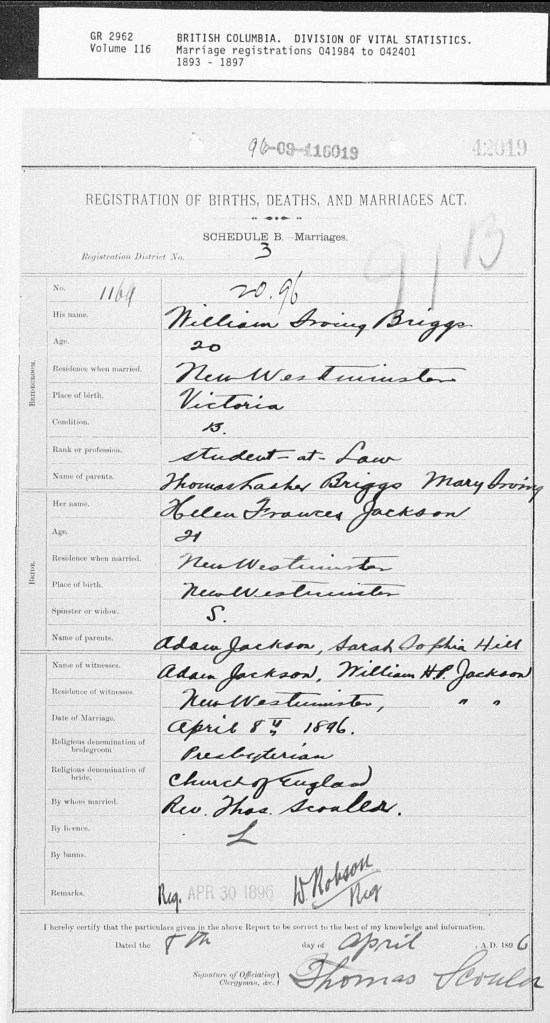 GR 2962 BRITISH COLUMBIA. DIVISION OF VITAL STATISTICS.
Volume 116 Marriage registrations 041984 to 042401
1893 - 1897
96-09-116019 42019
REGISTRATION OF BIRTHS, DEATHS, AND MARRIAGES ACT.
SCHEDULE B.—Marriages.
91B
Registration District No. 3
No. 1169 20.96
BRIDEGROOM.
His name. William Irving Briggs
Age. 20
Residence when married. New Westminster
Place of birth. Victoria
Condition. B.
Rank or profession. Student-at-Law
Name of parents. Thomas Lasher Briggs Mary Irving
BRIDE.
Her name. Helen Frances Jackson
Age. 21
Residence when married. New Westminster
Place of birth. New Westminster
Spinster or widow. S.
Name of parents. Adam Jackson, Sarah Sophia Hill
Name of witnesses. Adam Jackson, William H.P. Jackson
Residence of witnesses. New Westminster, " "
Date of Marriage. April 8th 1896.
Religious denomination of bridegroom Presbyterian
Religious denomination of bride. Church of England
By whom married. Rev. Thos. Scouler.
By licence. L
By banns.
Remarks. Reg. APR 30 1896 D. Robson
Reg
I hereby certify that the particulars given in the above Report to be correct to the best of my knowledge and information.
Dated the 8th day of April , A.D. 1896
Signature of Officiating Clergyman, &c. Thomas Scouler